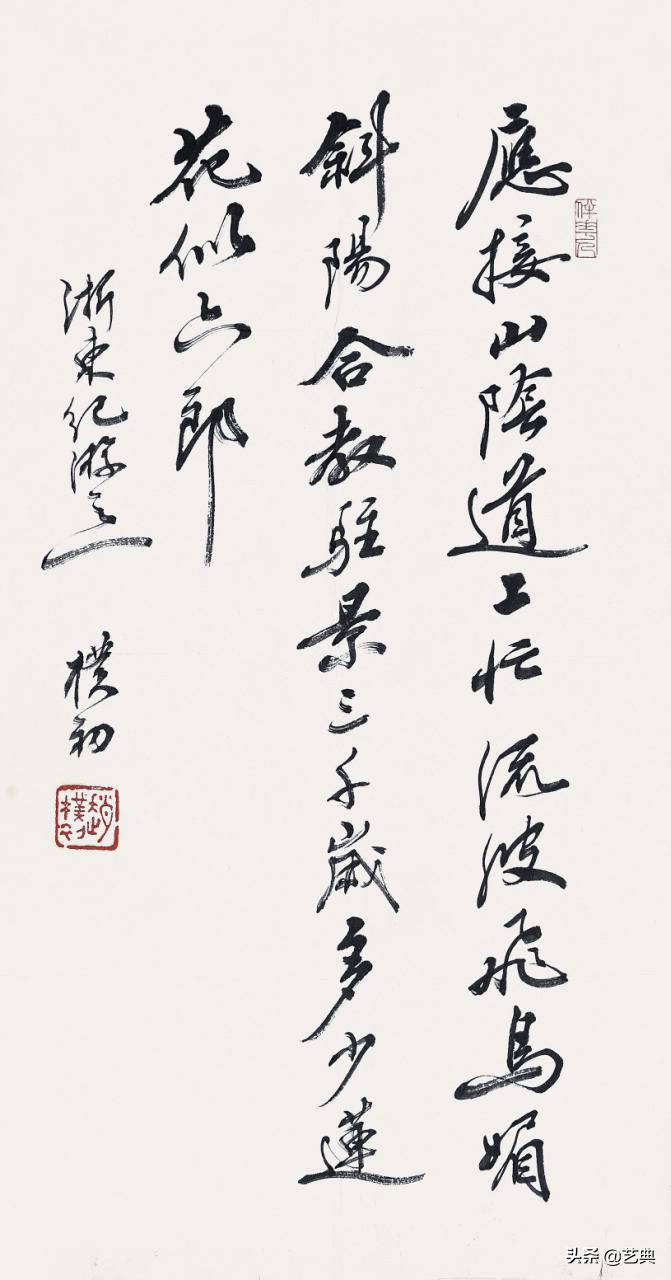 應接山陰道上忙流波飛鳥媚
斜陽合教駐景三千歲多少蓮
花似六郎
浙東紀游之一 樸初
趙樸初
头条 @艺典